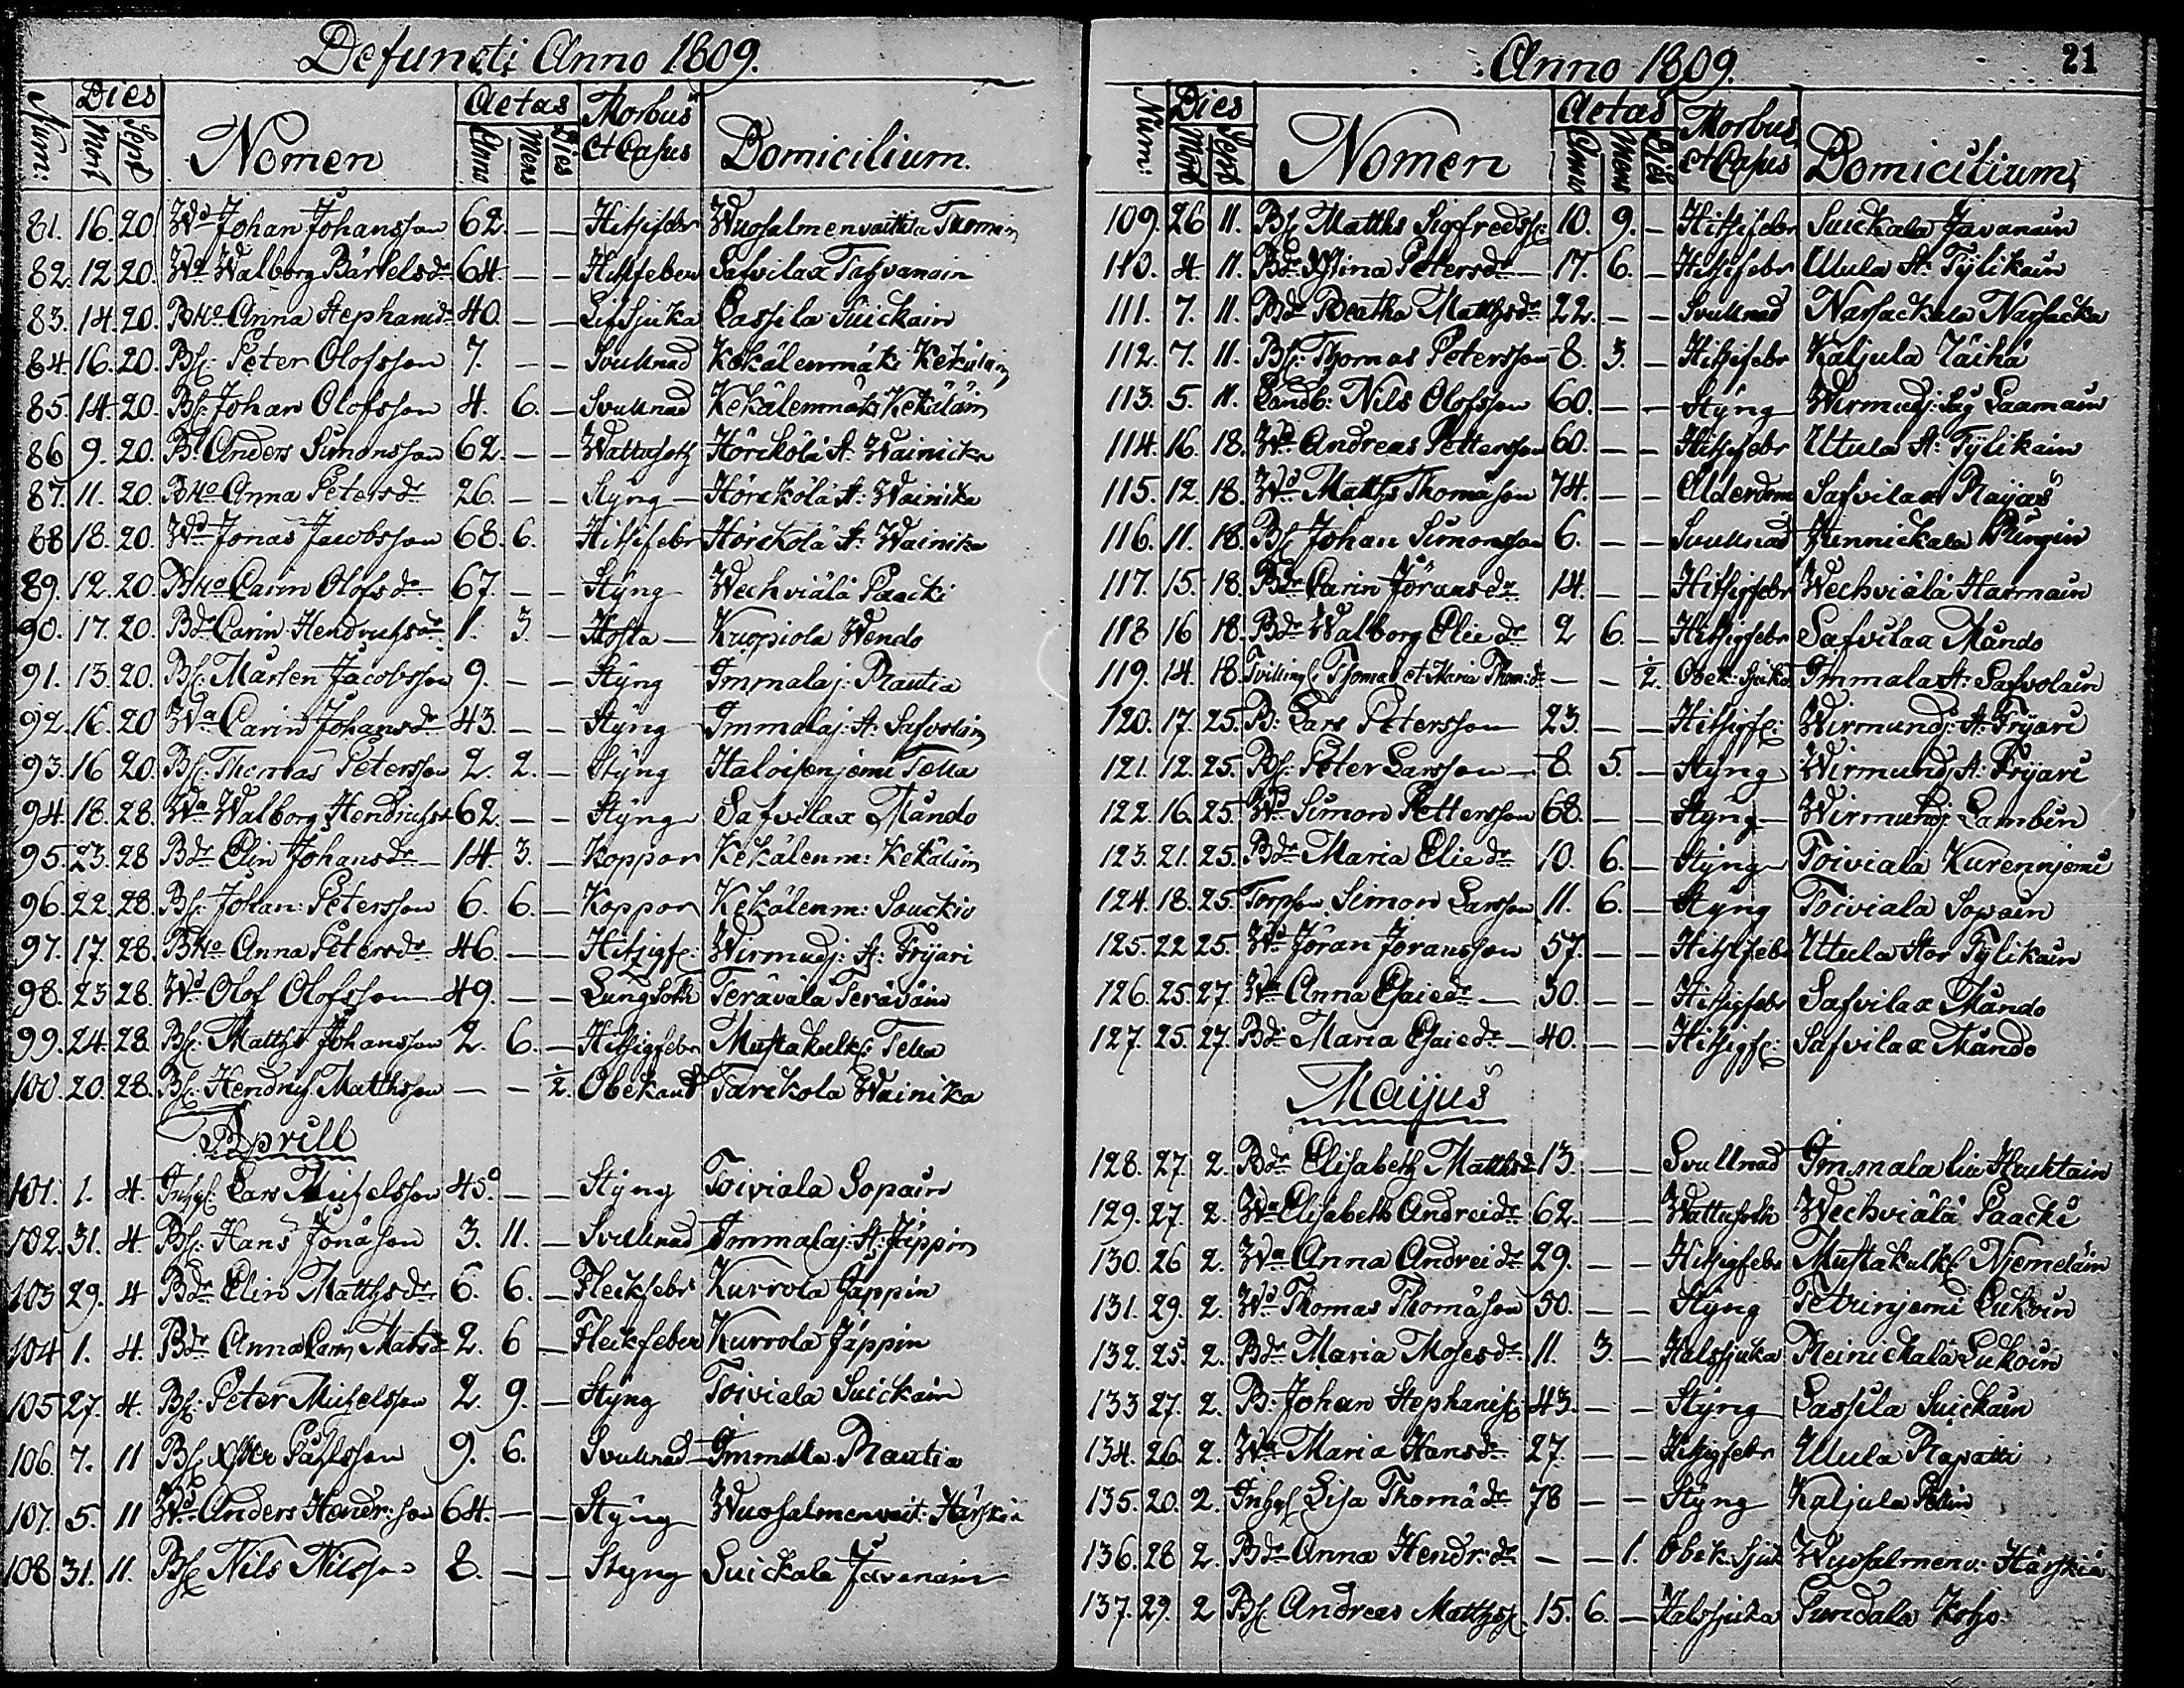 Defuncti Anno 1809.
Num: Dies Mort Sept Nomen Aetas Anno Mens Dies Morbus et Casus Domicilium.
81. 16. 20. Wd Johan Johansson 62. — — Hitsifebr Wuosalmenvaittila Thomin
82. 12 20. Wa Walborg Bärtelsdr 64. — — Hitsifeber Safvilax Tahvanain
83. 14. 20. BHo Anna Stephanidr 40. — — Lifsjuka Lassila Suickain
84. 16. 20. Bs: Peter Olofsson 7. — — Svullnad Kekälenmäki Kekäläin
85. 14. 20. Bs: Johan Olofsson 4. 6. — Svullnad Kekälenmäki Kekäläin
86 9. 20. B: Anders Simonsson 62. — — Wattusoth Hörckölä St: Wainicka
87. 11. 20. BHo Anna Petersdr 26. — — Styng Hörckölä St: Wainika
88 18. 20. Wd Jonas Jacobsson 68. 6. Hitsifebr Hörckölä St: Wainika
89. 12. 20. BHo Carin Olofsdr 67. — — Styng Wechviälä Paacki
90. 17. 20. Bdr Carin Hendrichsdr 1. 3. — Hosta Kuopiola Wendo
91. 13. 20. Bs: Mårten Jacobsson 9. — — Styng Immalaj: Rautia
92. 16. 20 Wa Carin Johansdr 43. — — Styng Immalaj: St: Safvolain
93. 16 20. Bs: Thomas Petersson 2. 2. — Styng Haloisenjemi Tella
94. 18. 28. Wa Walborg Hendrichsdr 62. — — Styng Safvilax Mändo
95. 23. 28 Bdr Elin Johansdr 14. 3. — Koppor Kekälenm: Kekäläin
96. 22. 28. Bs: Johan Petersson 6. 6. — Koppor Kekälenm: Souckio
97. 17. 28. BHo Anna Petersdr 46. — — Hitsigf: Wirmudj: St: Tryari
98. 23. 28. Wd Olof Olofsson 49. — — Lungsoth Terävälä Teräväin
99. 24. 28. Bs: Matths Johansson 2. 6. — Hitsigfebr Mustakulks: Tella
100. 20. 28. Bs: Hendrich Matthsson — — ½. Obekant Tarckola Wainika
Aprill
101. 1. 4. Inhys: Lars Michelsson 45. — — Styng Toiviala Sopain
102. 31. 4. Bs: Hans Jonäson 3. 11. — Svullnad Immalaj: St: Jäppin
103 29. 4 Bdr Elin Matthsdr 6. 6. — Fleckfebr Kurrola Jäppin
104 1. 4. Bdr Anna Carin Matsdr 2. 6 — Fleckfeber Kurrola Jäppin
105 27. 4. Bs: Peter Michelsson 2. 9. — Styng Toiviala Suickain
106. 7. 11 Bs: Påhlsson 9. 6. Svullnad Immala Rautia
107. 5. 11 Wd Anders Hendr:son 64. — — Styng Wuosalmenvait: Härskiä
108 31. 11. Bs Nils Nilsson 8. — — Styng Suickala Javanain
Anno 1809. 21
Num: Dies Mort Sept Nomen Aetas Anno Mens Dies Morbus et Casus Domicilium
109. 26 11. Bs: Matths Sigfredss: 10. 9. — Hitsifebr Suickala Javanain
110. 4. 11. Bdr Xstina Petersdr 17. 6. — Hitsifebr Utula St: Tylikain
111. 7. 11. Bdr Beatha Matthsdr 22. — — Svullnad Narsackala Narsacka
112. 7. 11. Bs: Thomas Petersson 8. 3. — Hitsifebr Kaljula Räihä
113. 5. 11. Landb: Nils Olofsson 60. — — Styng Wirmudj: Såg Saamain
114. 16. 18. Wd Andreas Pettersson 60. — — Hitsifebr Utula St: Tylikain
115. 12. 18. Wd Matths Thomäson 74. — — Ålderdom Safvilax
116. 11. 18. Bs Johan Simonsson 6. — — Svullnad Junnickala Pungin
117. 15. 18. Bdr Carin Jöransdr 14. — — Hitsigfebr Wechviälä Harmain
118 16 18. Bdr Walborg Eliedr 2 6. — Hitsigfebr Safvilax Mändo
119. 14. 18. Tvillings: Thomas et Maria Thom:dr — — ½. Obek: sjukd Immala St: Safvolain
120. 17. 25. B: Lars Petersson 23. — — Hitsigf: Wirmundj: St: Tryari
121. 12. 25. Bs: Peter Larsson 8. 5. — Styng Wirmundj: St: Tryari
122. 16. 25. Wd Simon Pettersson 68. — — Styng Wirmundj: Lambin
123. 21. 25. Bdr Maria Eliedr 10. 6. — Styng Toiviala Kurennjemi
124. 18. 25. Torpson Simon Larsson 11. 6. — Styng Toiviala Sopain
125. 22 25. Wd Jöran Joransson 57. — — Hitsifebr Utula Stor Tylikain
126. 25. 27. Wa Anna Esaiedr 30. — — Hitsigfebr Safvilax Mändo
127. 25. 27. Bdr Maria Esaiedr 40. — — Hitsigf: Safvilax Mändo
Maijus
128. 27. 2. Bdr Elisabeth Matthsdr 13. — — Svullnad Immala
129. 27. 2. Wa Elisabeth Andreidr 62. — — Wattusoth Wechviälä Paacki
130. 26 2. Wa Anna Andreidr 29. — — Hitsigfebr Mustakulks: Njemeläin
131. 29. 2. Wd Thomas Thomäson 50. — — Styng Petrinjemi Lukoin
132. 25. 2. Bdr Maria Mosesdr 11. 3. — Halssjuka Reinickala Lukoin
133 27. 2. B: Johan Stephanis: 43. — — Styng Lassila Suickain
134. 26. 2. Wa Maria Hansdr 27. — — Hitsigfebr Utula Rapatti
135. 20. 2. Inhys Lisa Thomädr 78 — — Styng Kaljula
136. 28 2. Bdr Anna Hendr:dr — — 1. Obek: sjuk Wuosalmenv: Härskiä
137. 29. 2 Bs: Andreas Matthss: 15. 6. — Halssjuka Purdala Koho